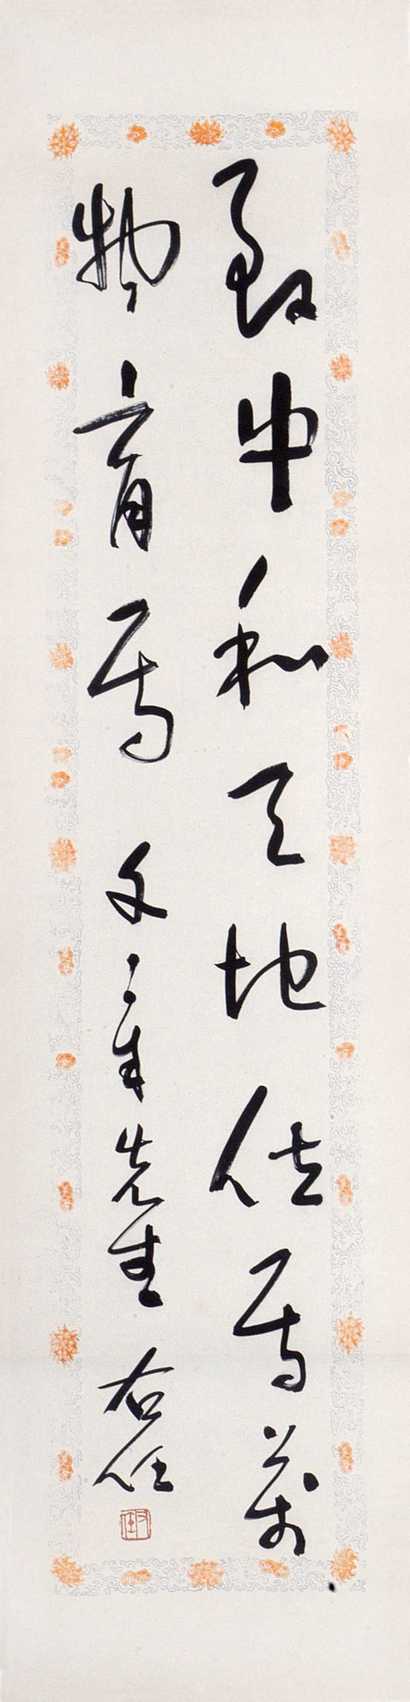 致中和天地位焉萬
物育焉 文章先生 右任